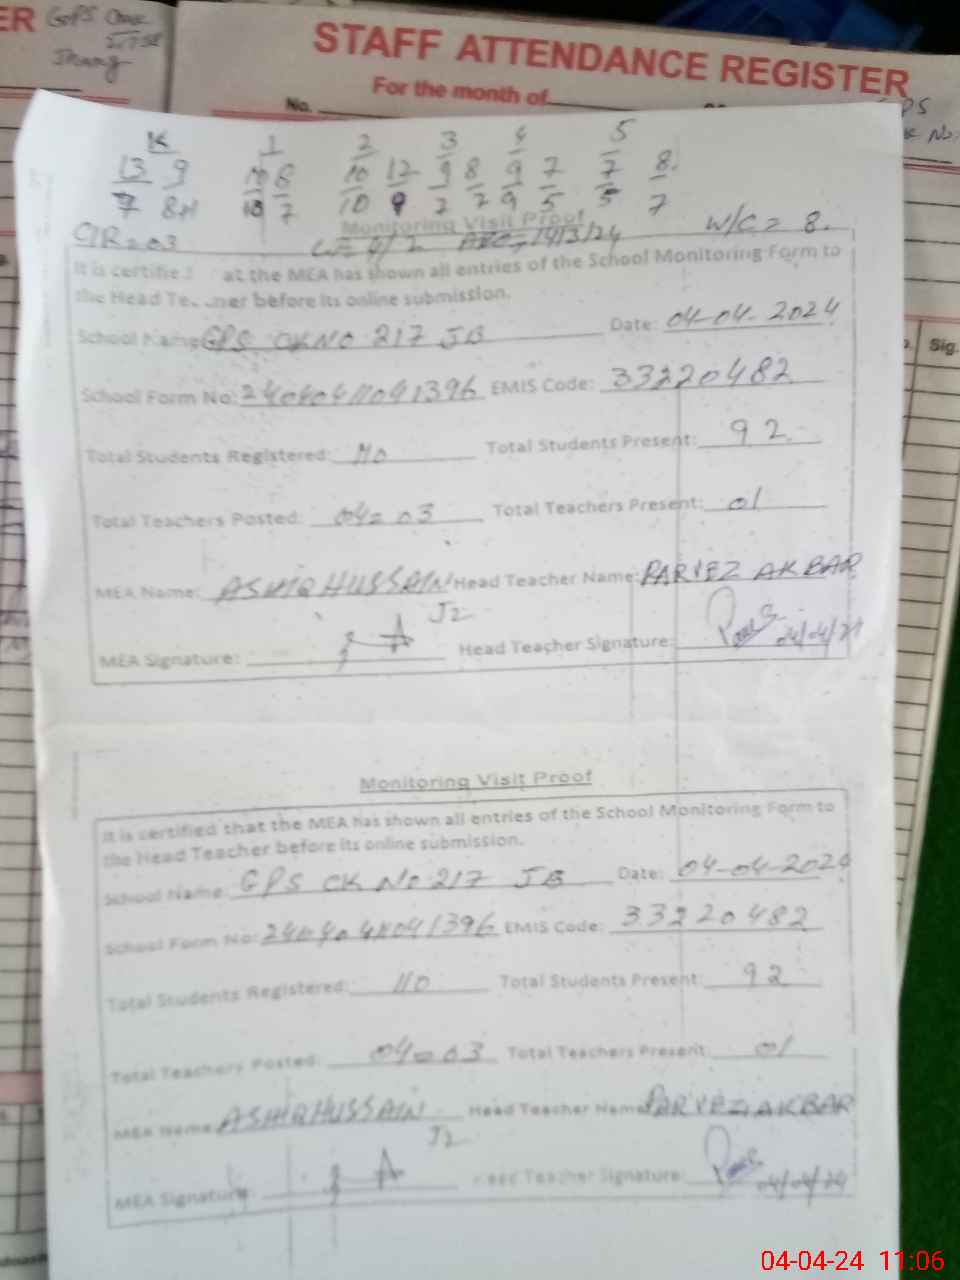 STAFF ATTENDANCE REGISTER
For the month of
No.
K 1 2 3 4 5
13 9 10 8 10 12 9 8 9 7 7 8
9 10 7 10 9 7 7 9 5 5 7
Monitoring Visit Proof
W/C = 8.
It is certified at the MEA has shown all entries of the School Monitoring Form to
the Head Teacher before its online submission.
School Name: GPS CK NO 217 JB Date: 04-04-2024
School Form No: EMIS Code: 33220482
Total Students Registered: 110 Total Students Present: 92
Total Teachers Posted: 04=03 Total Teachers Present: 01
MEA Name: ASHIQ HUSSAIN Head Teacher Name: PARVEZ AKBAR
J2
MEA Signature: Head Teacher Signature:
Sig.
Monitoring Visit Proof
It is certified that the MEA has shown all entries of the School Monitoring Form to
the Head Teacher before its online submission.
School Name: GPS CK No 217 JB Date: 04-04-2024
School Form No: EMIS Code: 33220482
Total Students Registered: 110 Total Students Present: 92
Total Teachers Posted: 04=03 Total Teachers Present: 01
MEA Name: ASHIQ HUSSAIN Head Teacher Name: PARVEZ AKBAR
J2
MEA Signature: Head Teacher Signature:
04-04-24 11:06